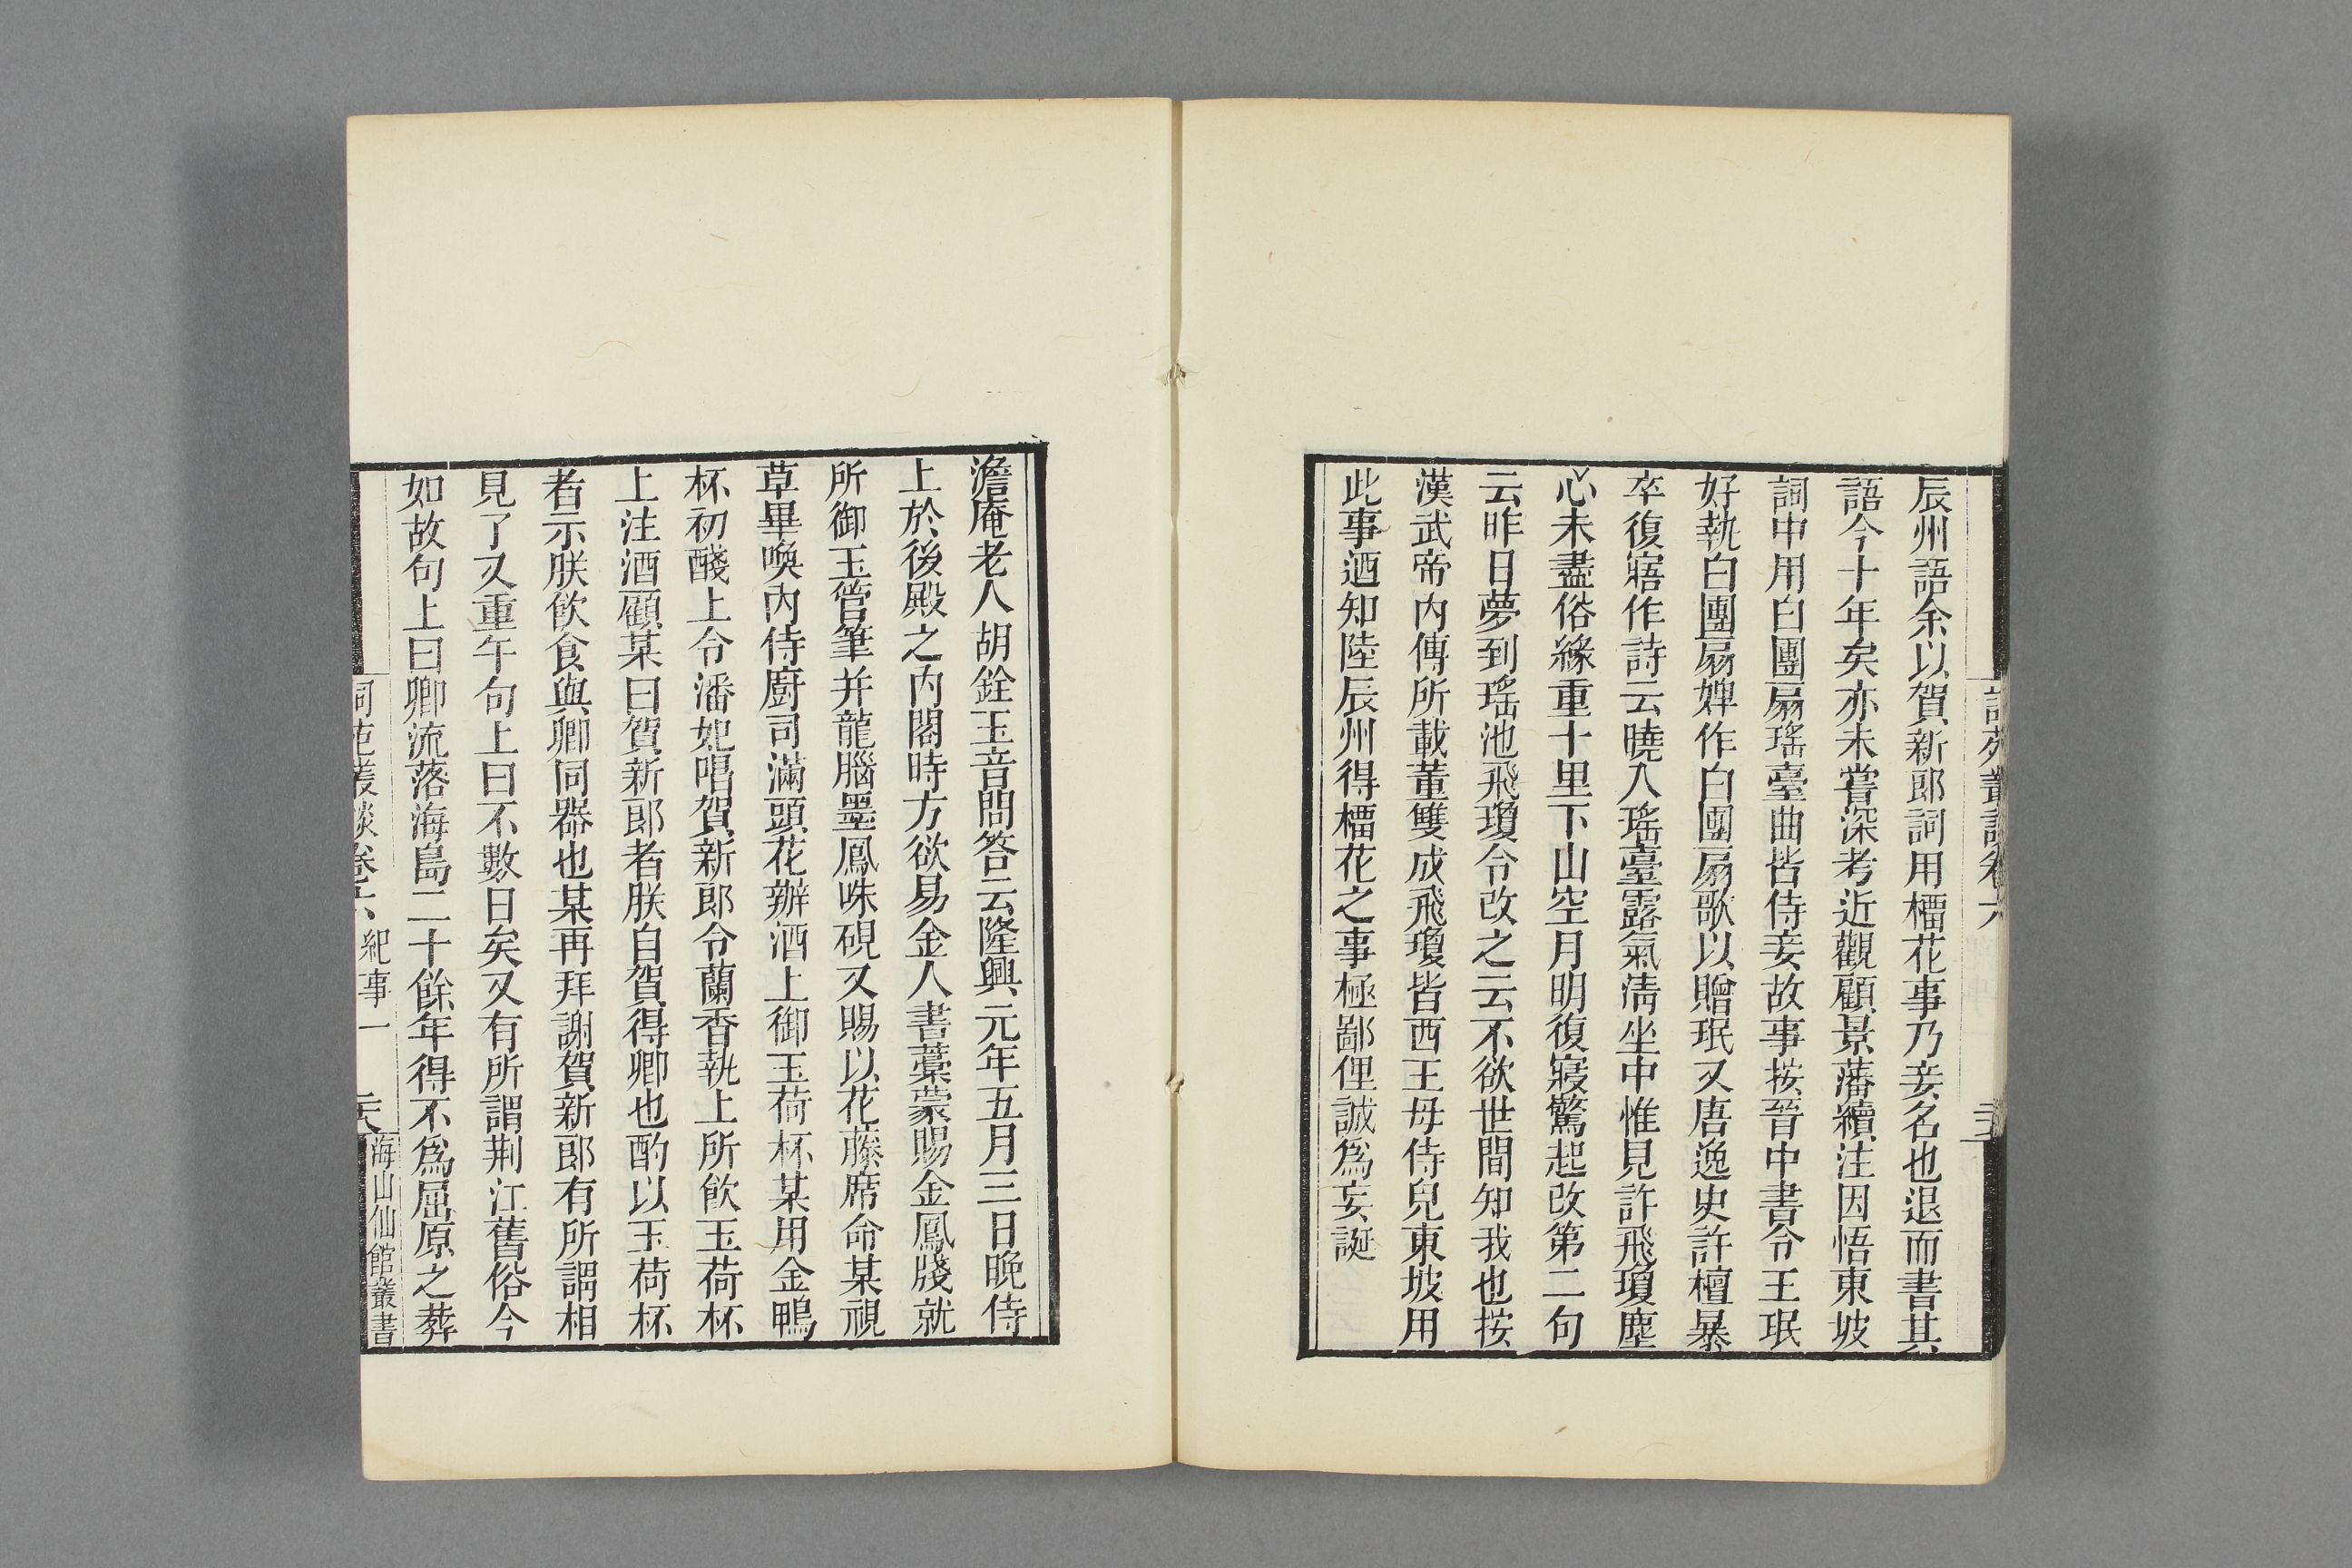 辰州語余以賀新郎詞用榴花事乃妾名也退而書其
語今十年矣亦未嘗深考近觀顧景藩續注因悟東坡
詞中用白團扇瑤臺曲皆侍妾故事按晉中書令王珉
好執白團扇婢作白團扇歌以贈珉又唐逸史許檀暴
卒復寤作詩云曉入瑤臺露氣清坐中惟見許飛瓊塵
心未盡俗緣重十里下山空月明復寢驚起改第二句
云昨日夢到瑤池飛瓊令改之云不欲世間知我也按
漢武帝內傳所載董雙成飛瓊皆西王母侍兒東坡用
此事迺知陸辰州得榴花之事極鄙俚誠為妄誕
澹庵老人胡銓玉音問答云隆興元年五月三日晚侍
上於後殿之內閣時方欲易金人書藁蒙賜金鳳牋就
所御玉管筆并龍腦墨鳳咮硯又賜以花藤席命某視
草畢喚內侍廚司滿頭花辦酒上御玉荷杯某用金鴨
杯初醆上令潘妃唱賀新郎令蘭香執上所飲玉荷杯
上注酒顧某曰賀新郎者朕自賀得卿也酌以玉荷杯
者示朕飲食與卿同器也某再拜謝賀新郎有所謂相
見了又重午句上曰不數日矣又有所謂荆江舊俗今
如故句上曰卿流落海島二十餘年得不為屈原之葬
詞苑叢談卷六 紀事一 二十八 海山仙館叢書